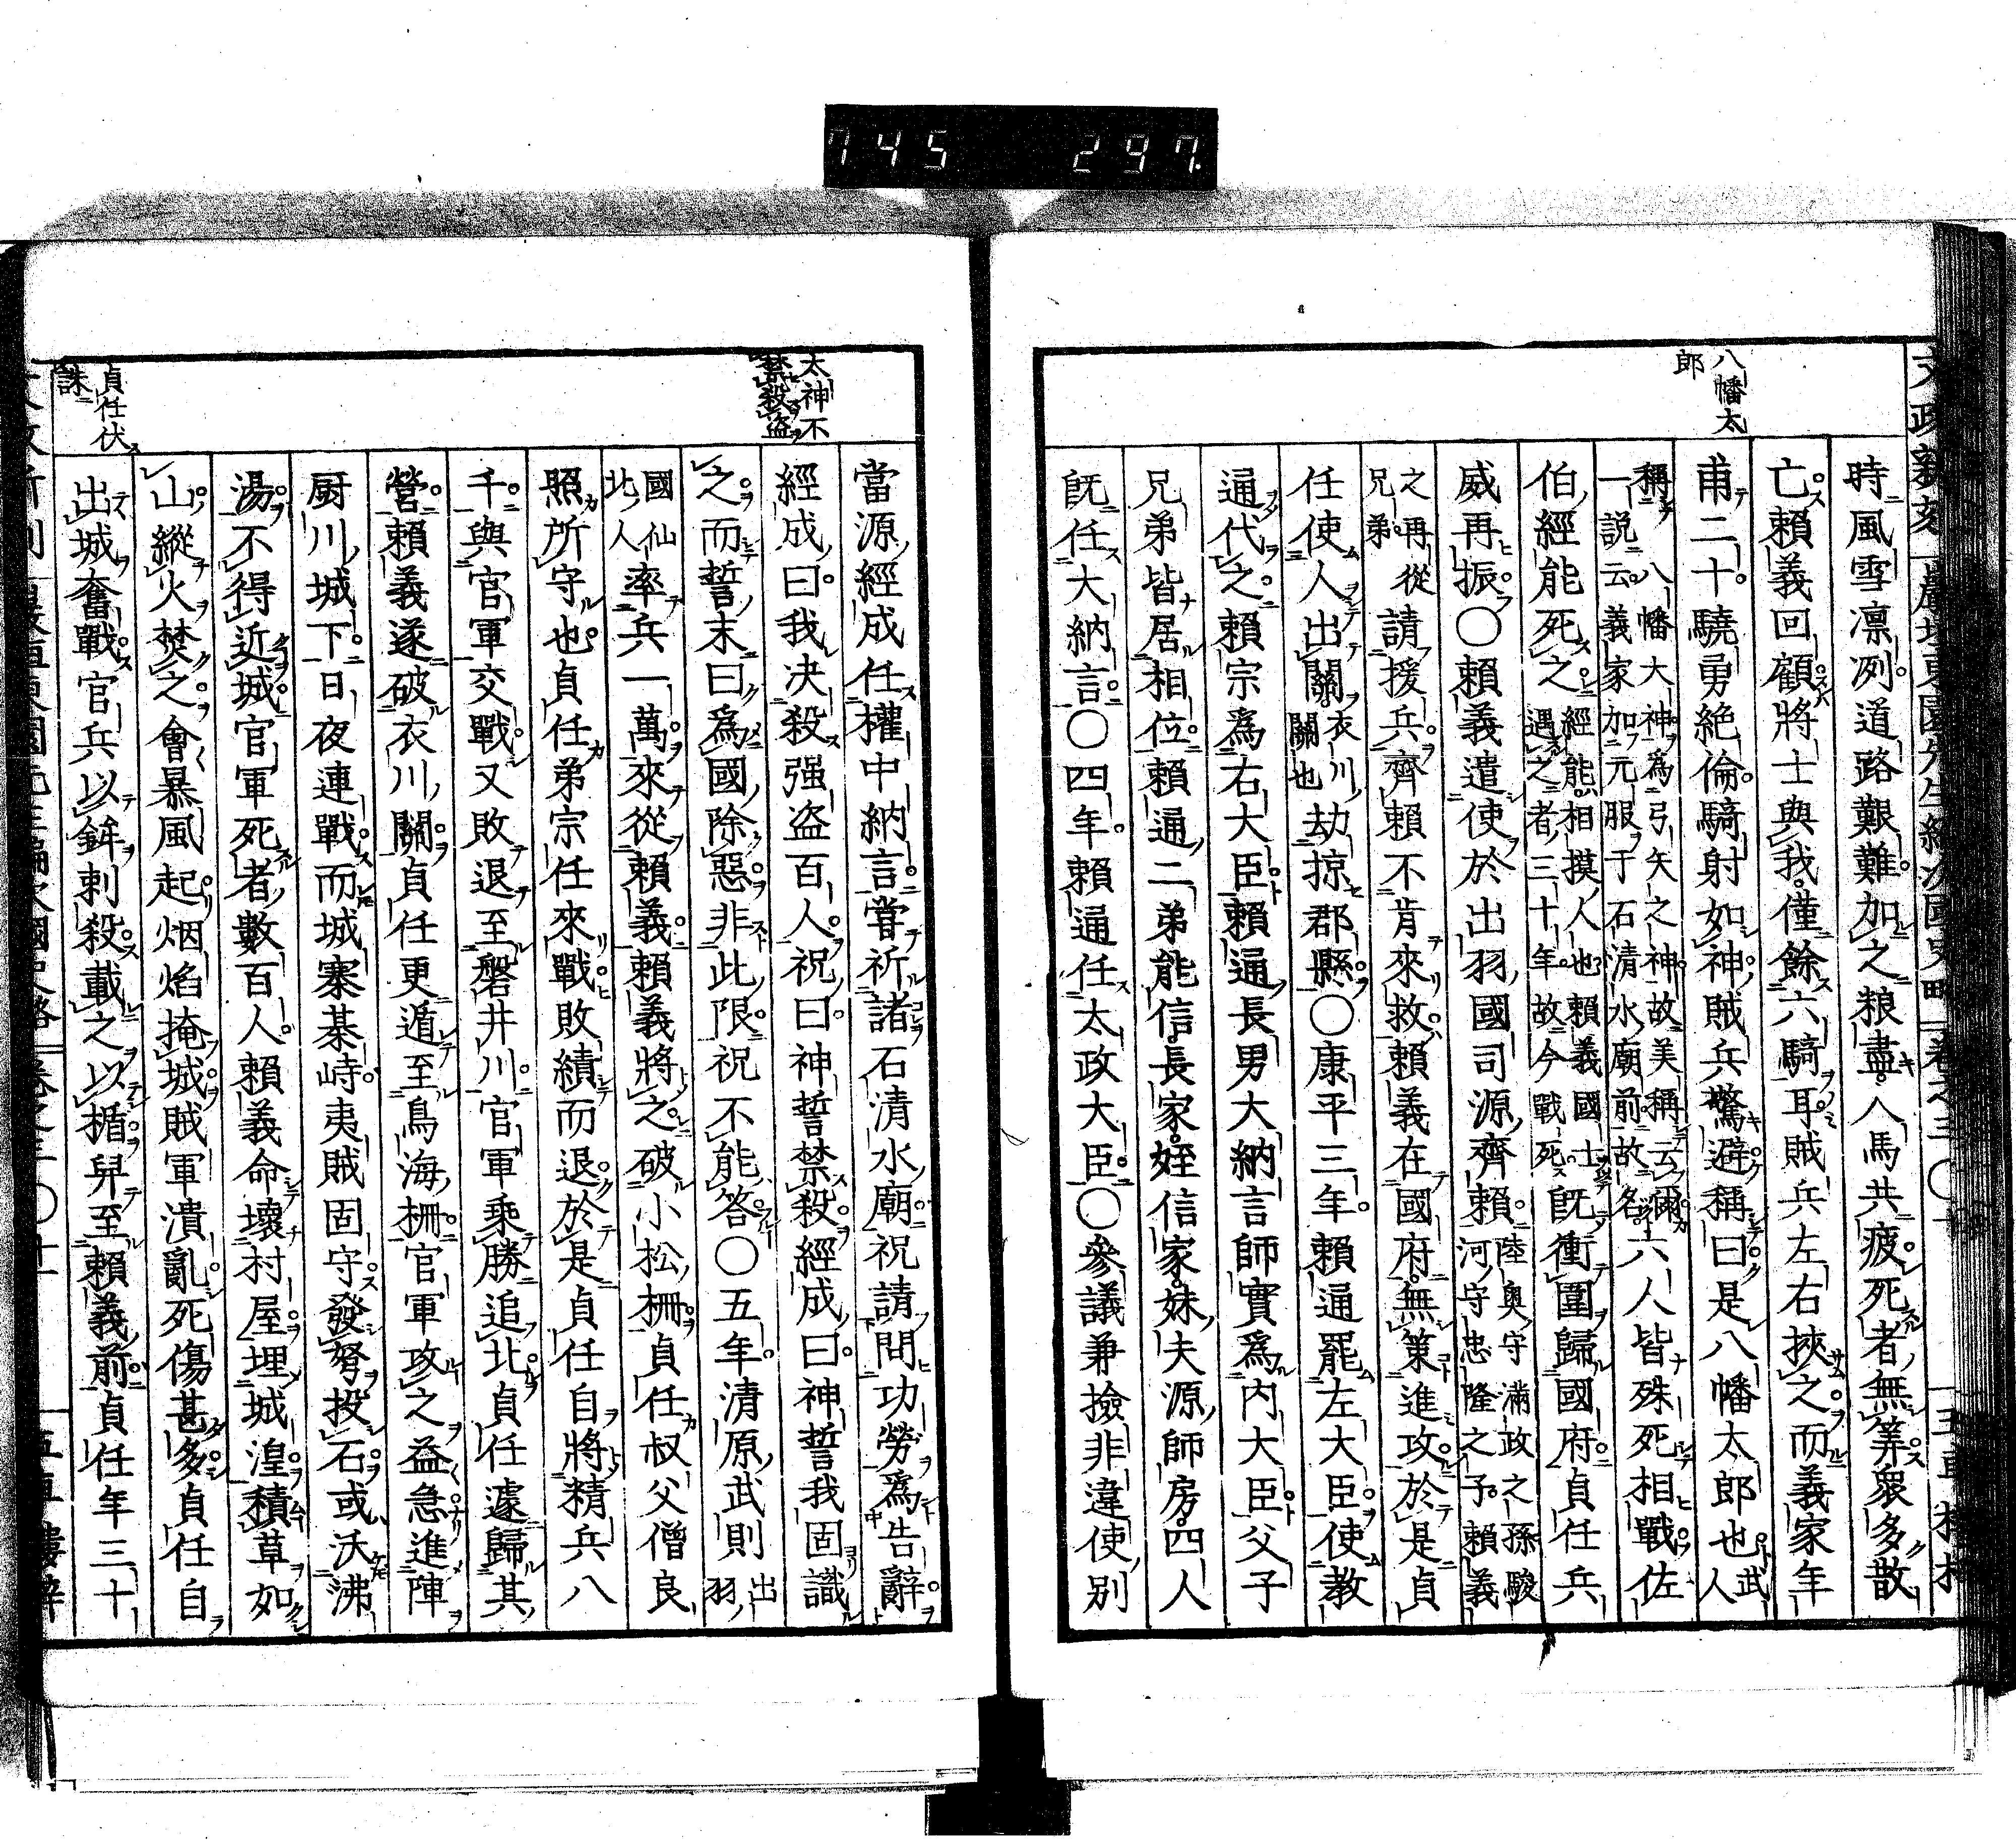 745 297
八幡太
郎
時風雪凛冽道路艱難加之粮盡人馬共疲死者無筭衆多散
亡賴義回顧將士與我僅餘六騎耳賊兵左右挾之而義家年
甫二十驍勇絶倫騎射如神賊兵驚避稱曰是八幡太郎也武人
稱八幡大神爲弓矢之神故美稱云爾
一説云義家加元服于石清水廟前故名
六人皆殊死相戰佐
伯經能死之
經能相摸人也賴義國士
遇之者三十年故今戰死
既衝圍歸國府貞任兵
威再振〇賴義遣使於出羽國司源齊賴
陸奥守滿政之孫駿
河守忠隆之子賴義
之再從
兄弟
請援兵齊賴不肯來救賴義在國府無策進攻於是貞
任使人出關
衣川
關也
劫掠郡縣〇康平三年賴通罷左大臣使教
通代之賴宗爲右大臣賴通長男大納言師實爲内大臣父子
兄弟皆居相位賴通二弟能信長家姪信家妹夫源師房四人
既任大納言〇四年賴通任太政大臣〇參議兼撿非違使别
太神不
禁殺盗
貞任伏
誅
當源經成任權中納言嘗祈諸石清水廟祝請問功勞爲告辭
經成曰我决殺强盗百人祝曰神誓禁殺經成曰神誓我固識
之而誓末曰爲國除惡非此限祝不能答〇五年清原武則
出羽
國仙
北人
率兵一萬來從賴義賴義將之破小松柵貞任叔父僧良
照所守也貞任弟宗任來戰敗績而退於是貞任自將精兵八
千與官軍交戰又敗退至磐井川官軍乘勝追北貞任遽歸其
營賴義遂破衣川關貞任更遁至鳥海柵官軍攻之益急進陣
厨川城下日夜連戰而城寨棊峙夷賊固守發弩投石或沃沸
湯不得近城官軍死者數百人賴義命壞村屋埋城湟積草如
山縱火焚之會暴風起烟焰掩城賊軍潰亂死傷甚多貞任自
出城奮戰官兵以鉾刺殺載之以楯舁至賴義前貞任年三十